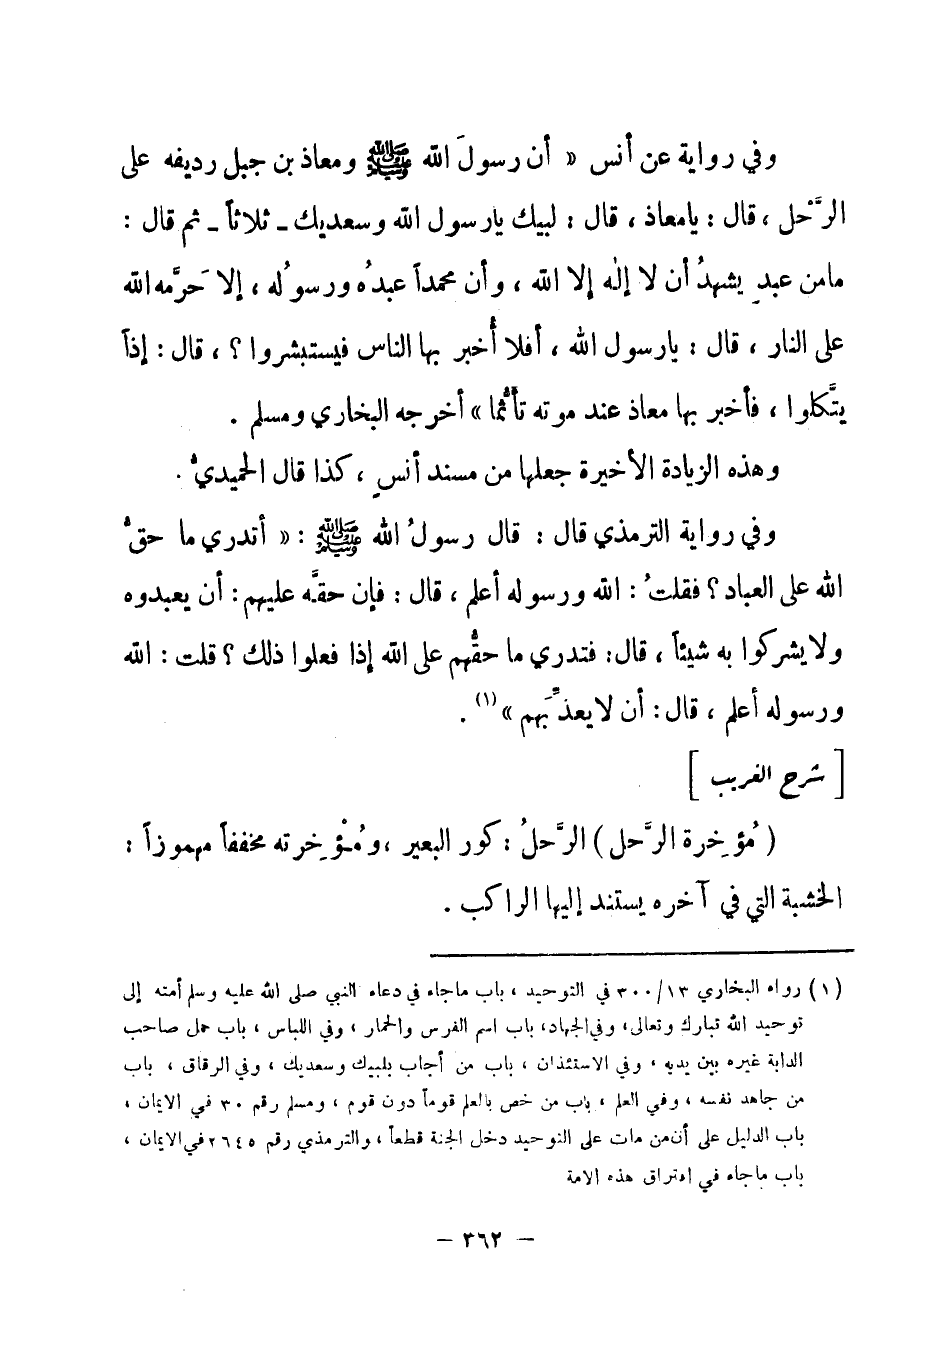 وفي رواية عن أنس « أن رسولَ الله ﷺ ومعاذ بن جبل رديفه على
الرَّحْل ، قال : يامعاذ ، قال : لبيك يارسول الله وسعديك ـ ثلاثاً ـ ثم قال :
مامن عبدٍ يشهدُ أن لا إلٰه إلا الله ، وأن محمداً عبدُه ورسولُه ، إلا حَرَّمه الله
على النار ، قال : يارسول الله ، أفلا أُخبر بها الناس فيستبشروا ؟ ، قال : إذاً
يتَّكلوا ، فأخبر بها معاذ عند موته تأثُّما » أخرجه البخاري ومسلم .
وهذه الزيادة الأخيرة جعلها من مسند أنسٍ ، كذا قال الحميديُّ .
وفي رواية الترمذي قال : قال رسولُ الله ﷺ : « أتدري ما حقُّ
الله على العباد ؟ فقلتُ : الله ورسوله أعلم ، قال : فإن حقَّه عليهم : أن يعبدوه
ولا يشركوا به شيئاً ، قال : فتدري ما حقُّهم على الله إذا فعلوا ذلك ؟ قلت : الله
ورسوله أعلم ، قال : أن لا يعذِّبَهم » (١) .
[ شرح الغريب ]
( مُؤخِرة الرَّحل ) الرَّحلُ : كور البعير ، ومُؤْخِرته مخففاً مهموزاً :
الخشبة التي في آخره يستند إليها الراكب .
(١) رواه البخاري ١٣/٣٠٠ في التوحيد ، باب ماجاء في دعاء النبي صلى الله عليه وسلم أمته إلى
توحيد الله تبارك وتعالى، وفي الجهاد، باب اسم الفرس والحمار ، وفي اللباس ، باب حمل صاحب
الدابة غيره بين يديه ، وفي الاستئذان ، باب من أجاب بلبيك وسعديك ، وفي الرقاق ، باب
من جاهد نفسه ، وفي العلم ، باب من خص بالعلم قوماً دون قوم ، ومسلم رقم ٣٠ في الايمان ،
باب الدليل على أن من مات على التوحيد دخل الجنة قطعاً ، والترمذي رقم ٢٦٤٥ في الايمان ،
باب ماجاء في افتراق هذه الامة
– ٣٦٢ –